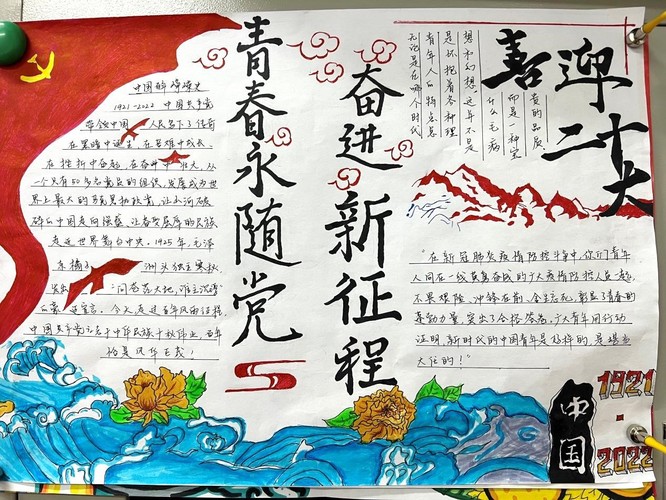 喜迎
二十大
青春永随党
奋进新征程
中国醉缔凌史
1921-2022 中国共产党
带领中国人民写下了传奇
在黑暗中诞生,在苦难中成长,
在挫折中奋起,在奋斗中壮大,从
一个只有50多名党员的组织,发展成为世
界上最大的马克思执政党,让山河破
碎的中国走向强盛,让备受屈辱的民族
走近世界舞台中央。1925年,毛泽
东橘子洲头独立寒秋
发出“问苍茫大地,谁主沉浮
的豪迈宣言。今天走过百年风雨征程
中国共产党党员于中华民族千秋伟业,百年
恰是风华正茂!
无论是在哪个时代
青年人的特点总
是怀抱着各种理
想和幻想。这并不是
什么毛病
而是一种宝
贵的品质
“在新冠肺炎疫情防控斗争中,你们青年
人同在一线英勇奋战的广大疫情防控人员一起,
不畏艰险、冲锋在前、舍生忘死,彰显了青春的
蓬勃力量,交出了合格答卷。广大青年用行动
证明,新时代的中国青年是好样的,是堪当
大任的!”
中国
1921
-
2022